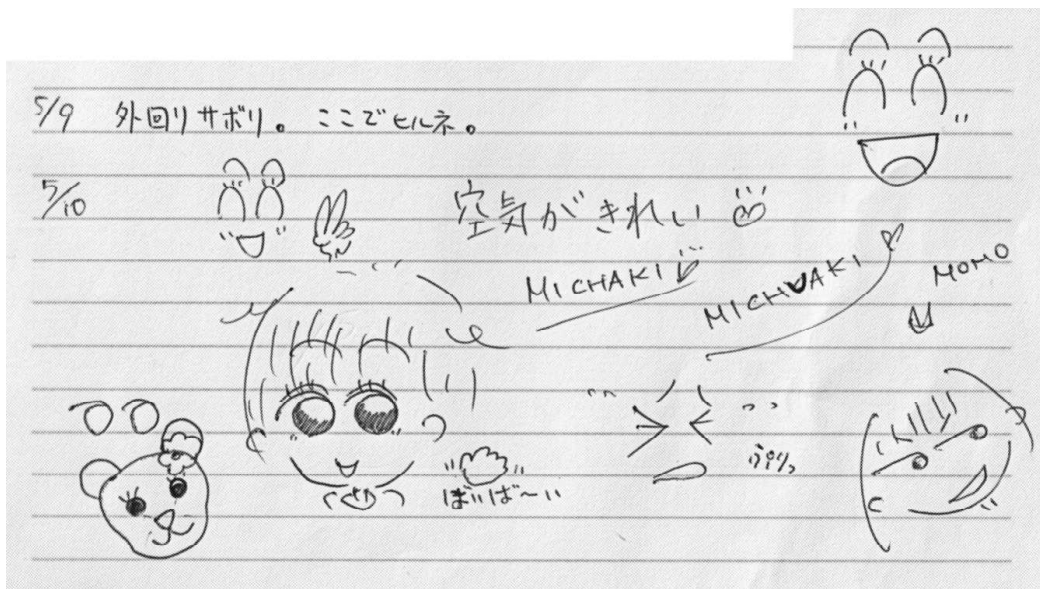 5/9 外回りサボリ。 ここでヒルネ。
5/10
空気がきれい
MICHAKI
MICHUAKI
MOMO
ばいば〜い